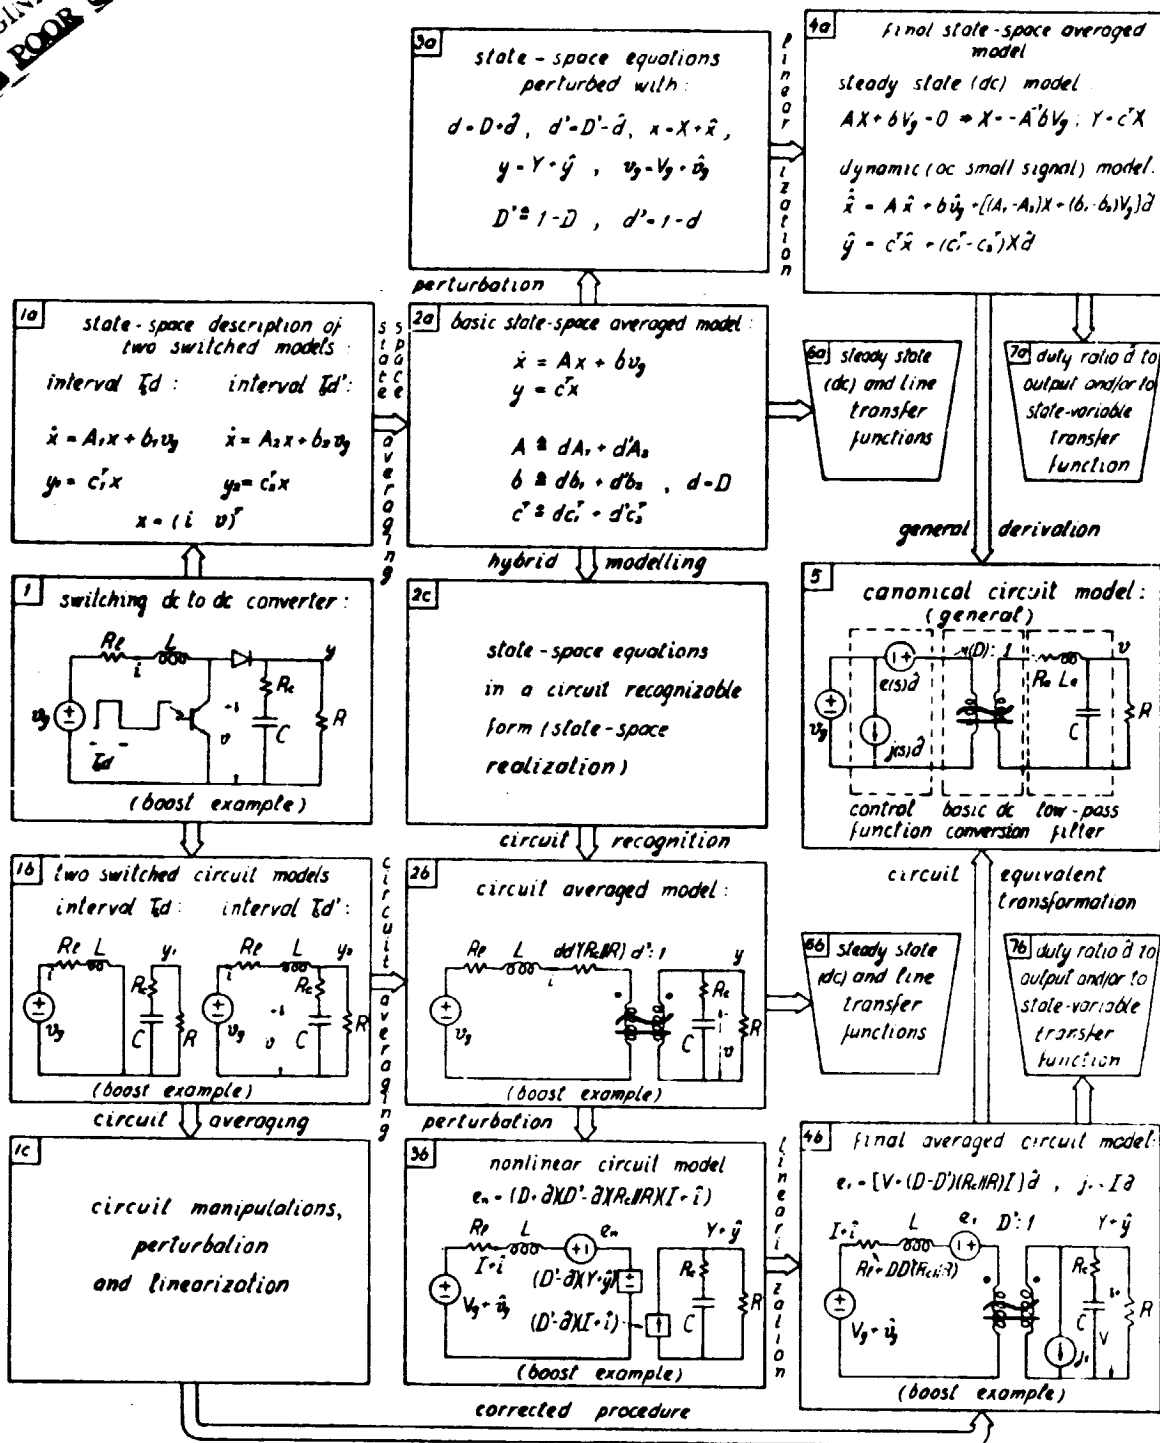 POOR
3a
state-space equations
perturbed with:
d=D+d̂, d'=D'-d̂, x=X+x̂,
y=Y+ŷ , v_g=V_g+v̂_g
D'≜1-D , d'=1-d
linearization
4a
final state-space averaged
model
steady state (dc) model
AX+bV_g=0 ⇒ X=-A⁻¹bV_g; Y=cᵀX
dynamic (ac small signal) model:
x̂̇ = Ax̂ + bv̂_g + [(A₁-A₂)X+(b₁-b₂)V_g]d̂
ŷ = cᵀx̂ + (c₁ᵀ-c₂ᵀ)Xd̂
perturbation
1a
state-space description of
two switched models:
interval T_sd: interval T_sd':
ẋ=A₁x+b₁v_g ẋ=A₂x+b₂v_g
y₁=c₁ᵀx y₂=c₂ᵀx
x=(i v)ᵀ
state space averaging
2a
basic state-space averaged model:
ẋ = Ax + bv_g
y = cᵀx
A ≜ dA₁ + d'A₂
b ≜ db₁ + d'b₂ , d=D
cᵀ ≜ dc₁ᵀ + d'c₂ᵀ
6a steady state
(dc) and line
transfer
functions
7a duty ratio d̂ to
output and/or to
state-variable
transfer
function
general derivation
hybrid modelling
1
switching dc to dc converter:
Rℓ L i y
v_g T_sd v R_c C R
(boost example)
2c
state-space equations
in a circuit recognizable
form (state-space
realization)
5
canonical circuit model:
(general)
e(s)d̂ μ(D):1 R_e L_e v
v_g j(s)d̂ C R
control basic dc low-pass
function conversion filter
circuit recognition
circuit equivalent
transformation
1b
two switched circuit models
interval T_sd: interval T_sd':
Rℓ L y₁ Rℓ L y₂
i R_c i R_c
v_g C R v_g v C R
(boost example)
circuit averaging
2b
circuit averaged model:
Rℓ L dd'(R_c∥R) d':1 y
i R_c
v_g C v R
(boost example)
6b steady state
(dc) and line
transfer
functions
7b duty ratio d̂ to
output and/or to
state-variable
transfer
function
circuit averaging
perturbation
1c
circuit manipulations,
perturbation
and linearization
3b
nonlinear circuit model
e_n=(D+d̂)(D'-d̂)(R_c∥R)(I+î)
Rℓ L e_n Y+ŷ
I+î (D'-d̂)(Y+ŷ) R_c
V_g+v̂_g (D'-d̂)(I+î) C R
(boost example)
linearization
4b
final averaged circuit model:
e₁=[V+(D-D')(R_c∥R)I]d̂ , j₁=Id̂
I+î L e₁ D':1 Y+ŷ
Rℓ+DD'(R_c∥R) R_c
V_g+v̂_g j₁ C V R
(boost example)
corrected procedure